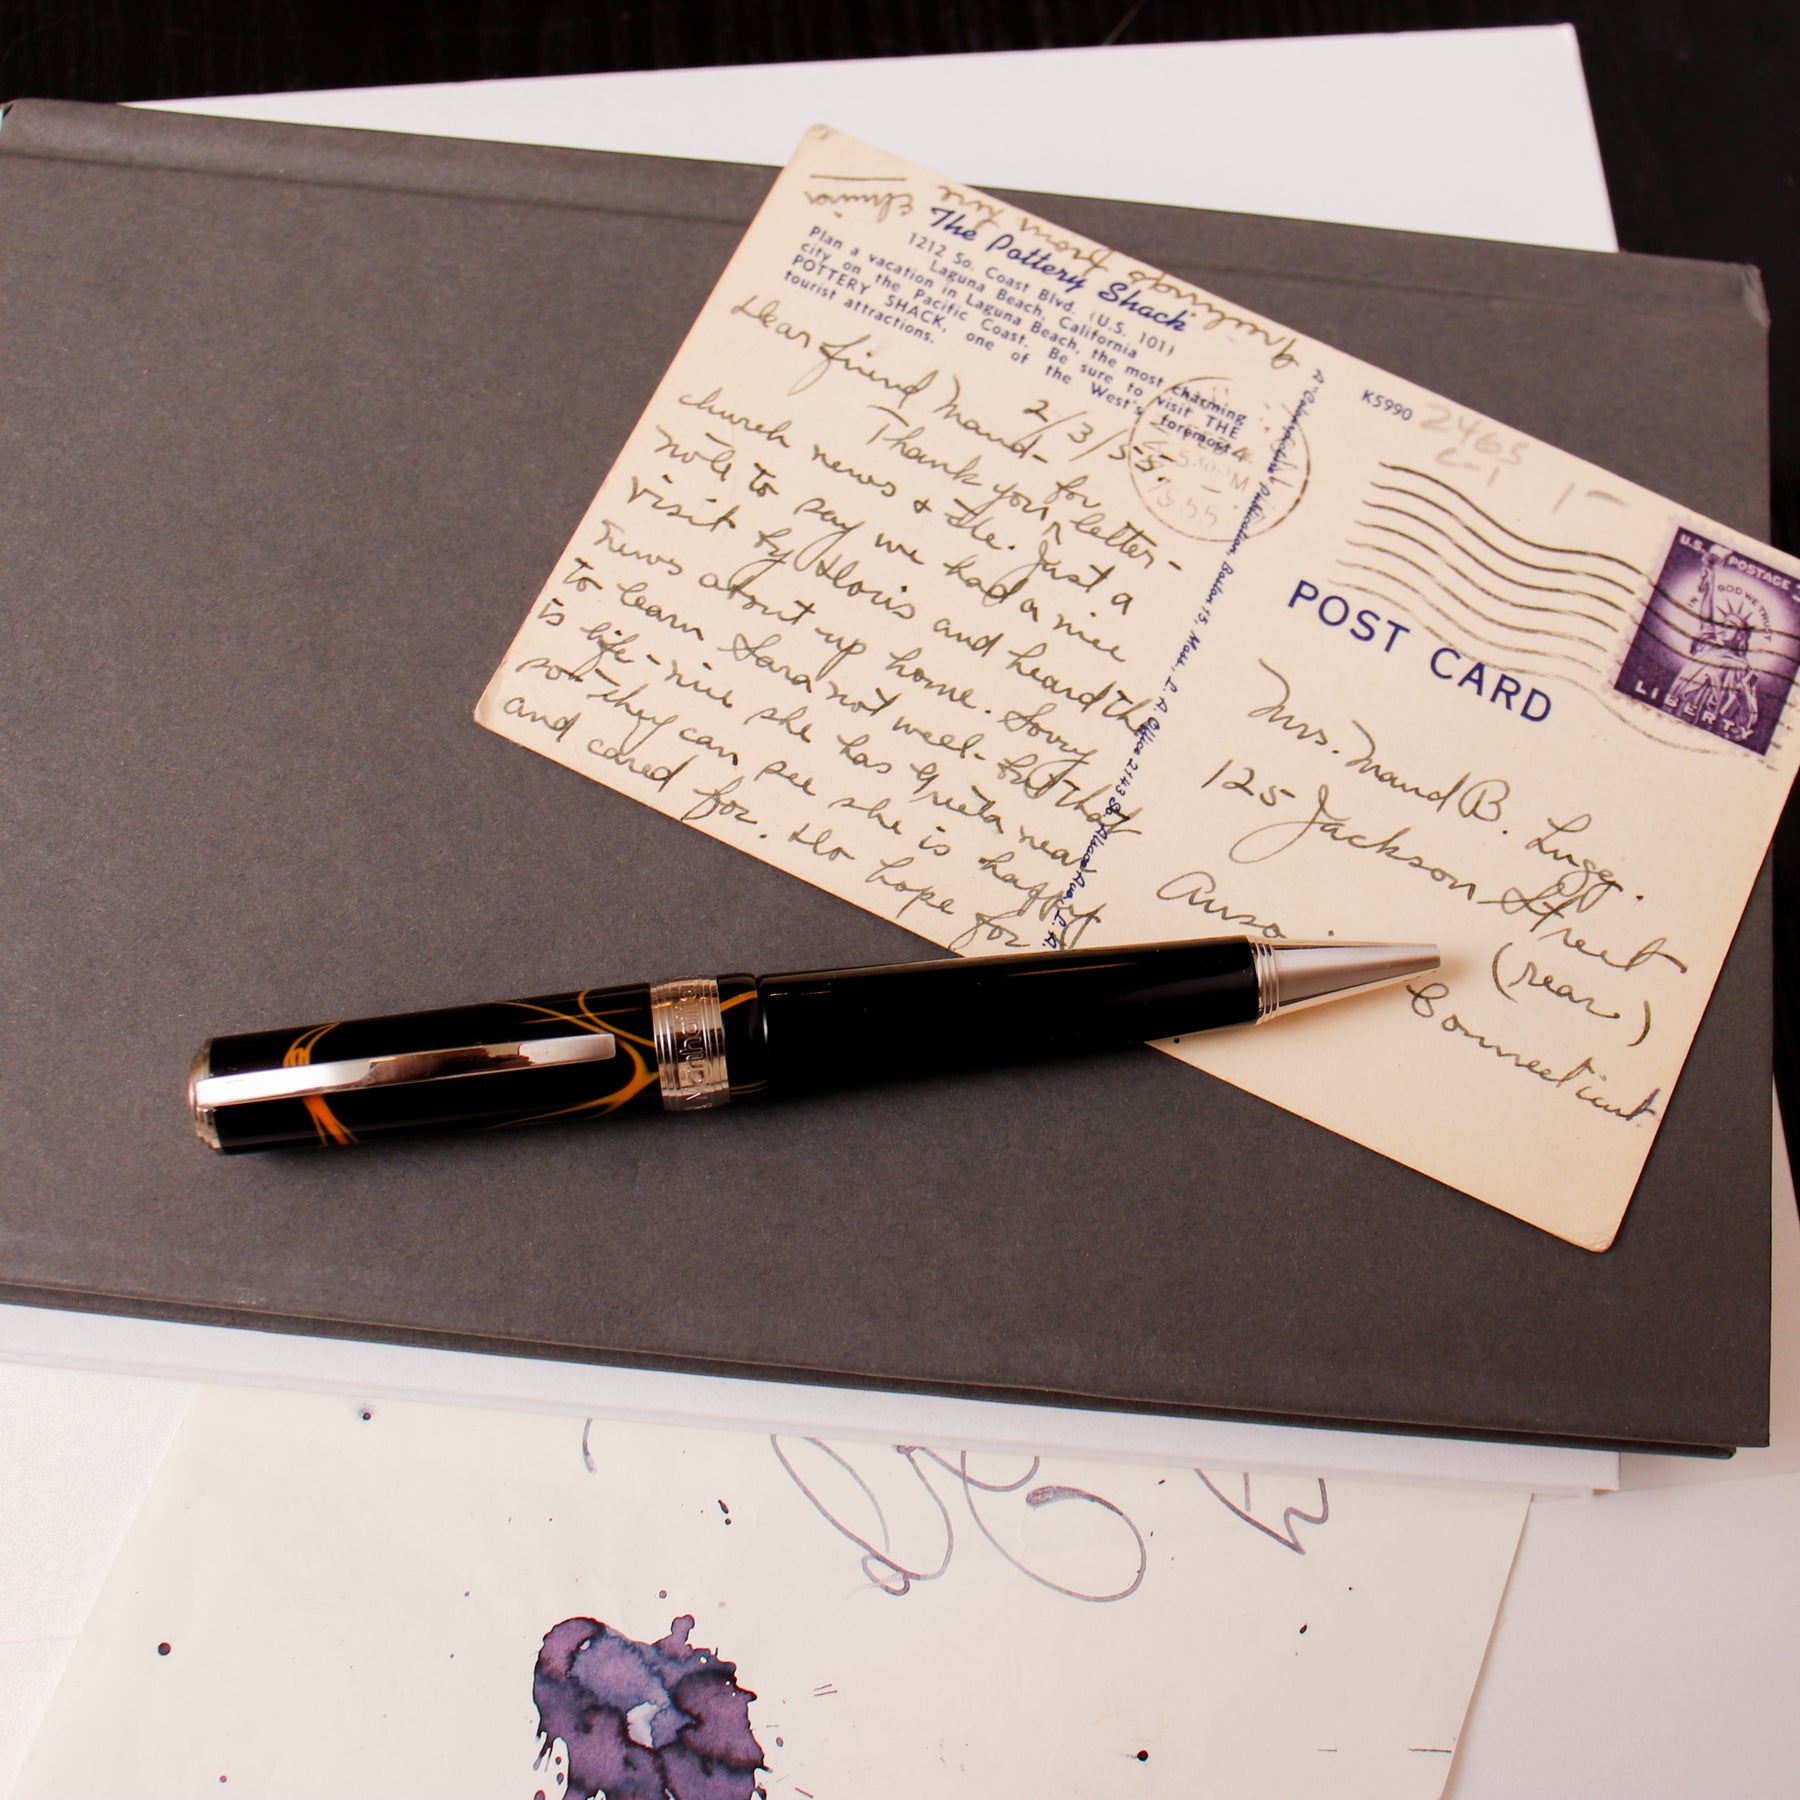 The Pottery Shack
1212 So. Coast Blvd. (U.S. 101)
Laguna Beach, California
Plan a vacation in Laguna Beach, the most charming
city on the Pacific Coast. Be sure to visit THE
POTTERY SHACK, one of the West's foremost
tourist attractions.
2/3/55.
Dear friend Maud-
Thank you for letter-
church news & etc. Just a
note to say we had a nice
visit by Doris and heard the
news about up home. Sorry
to learn Sara not well- but that
is life- nice she has Greta near
so they can see she is happy
and cared for. Do hope for
Greetings from here
Elmira
R "Colorpicture" Publication, Boston 15, Mass., L. A. Office 2143 So. Alsace Ave., L. A.
K5990
2465
C-1
1-
FEB 4
5 30 PM
1955
POST CARD
U.S. POSTAGE 3
IN GOD WE TRUST
LIBERTY
Mrs. Maud B. Lugg.
125 Jackson Street
(rear)
Anso.
Connecticut.
Manhattan